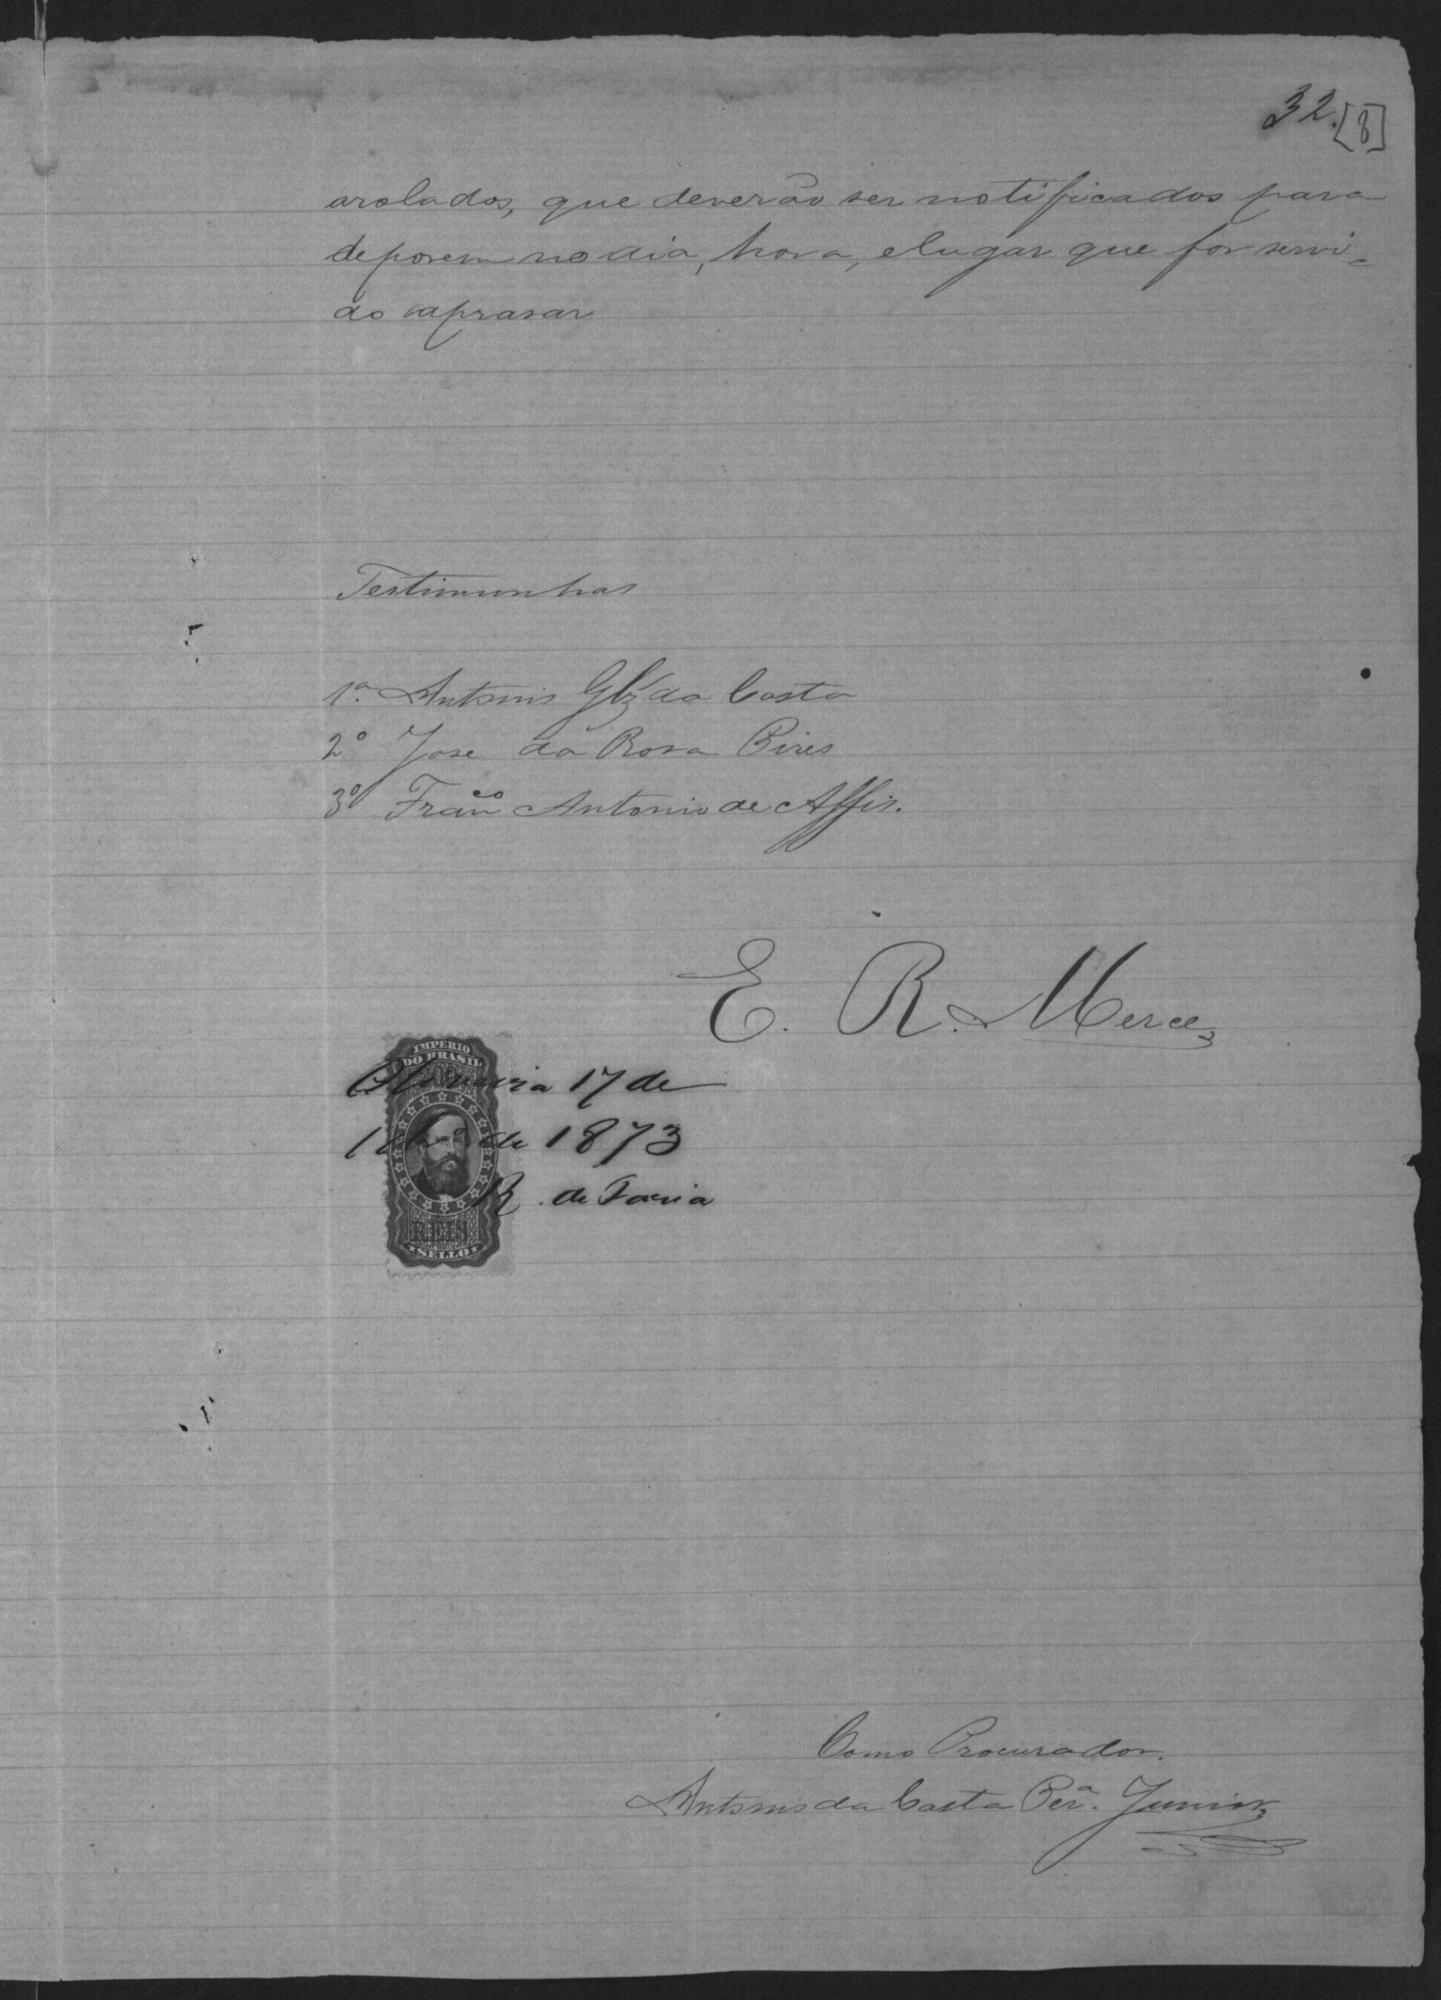 32. [8]
arolados, que deverão ser notificados para
deporem no dia, hora, e lugar que for servi-
do aprasar
Testimunhas
1ª. Antonio Glz da Costa
2º Jose da Rosa Pires
3º Franco Antonio de Assis.
E. R. Merce
IMPERIO
DO BRASIL
17 de
de 1873
R. de Faria
REIS
SELLO
Como Procurador.
Antonio da Costa Perª. Junior